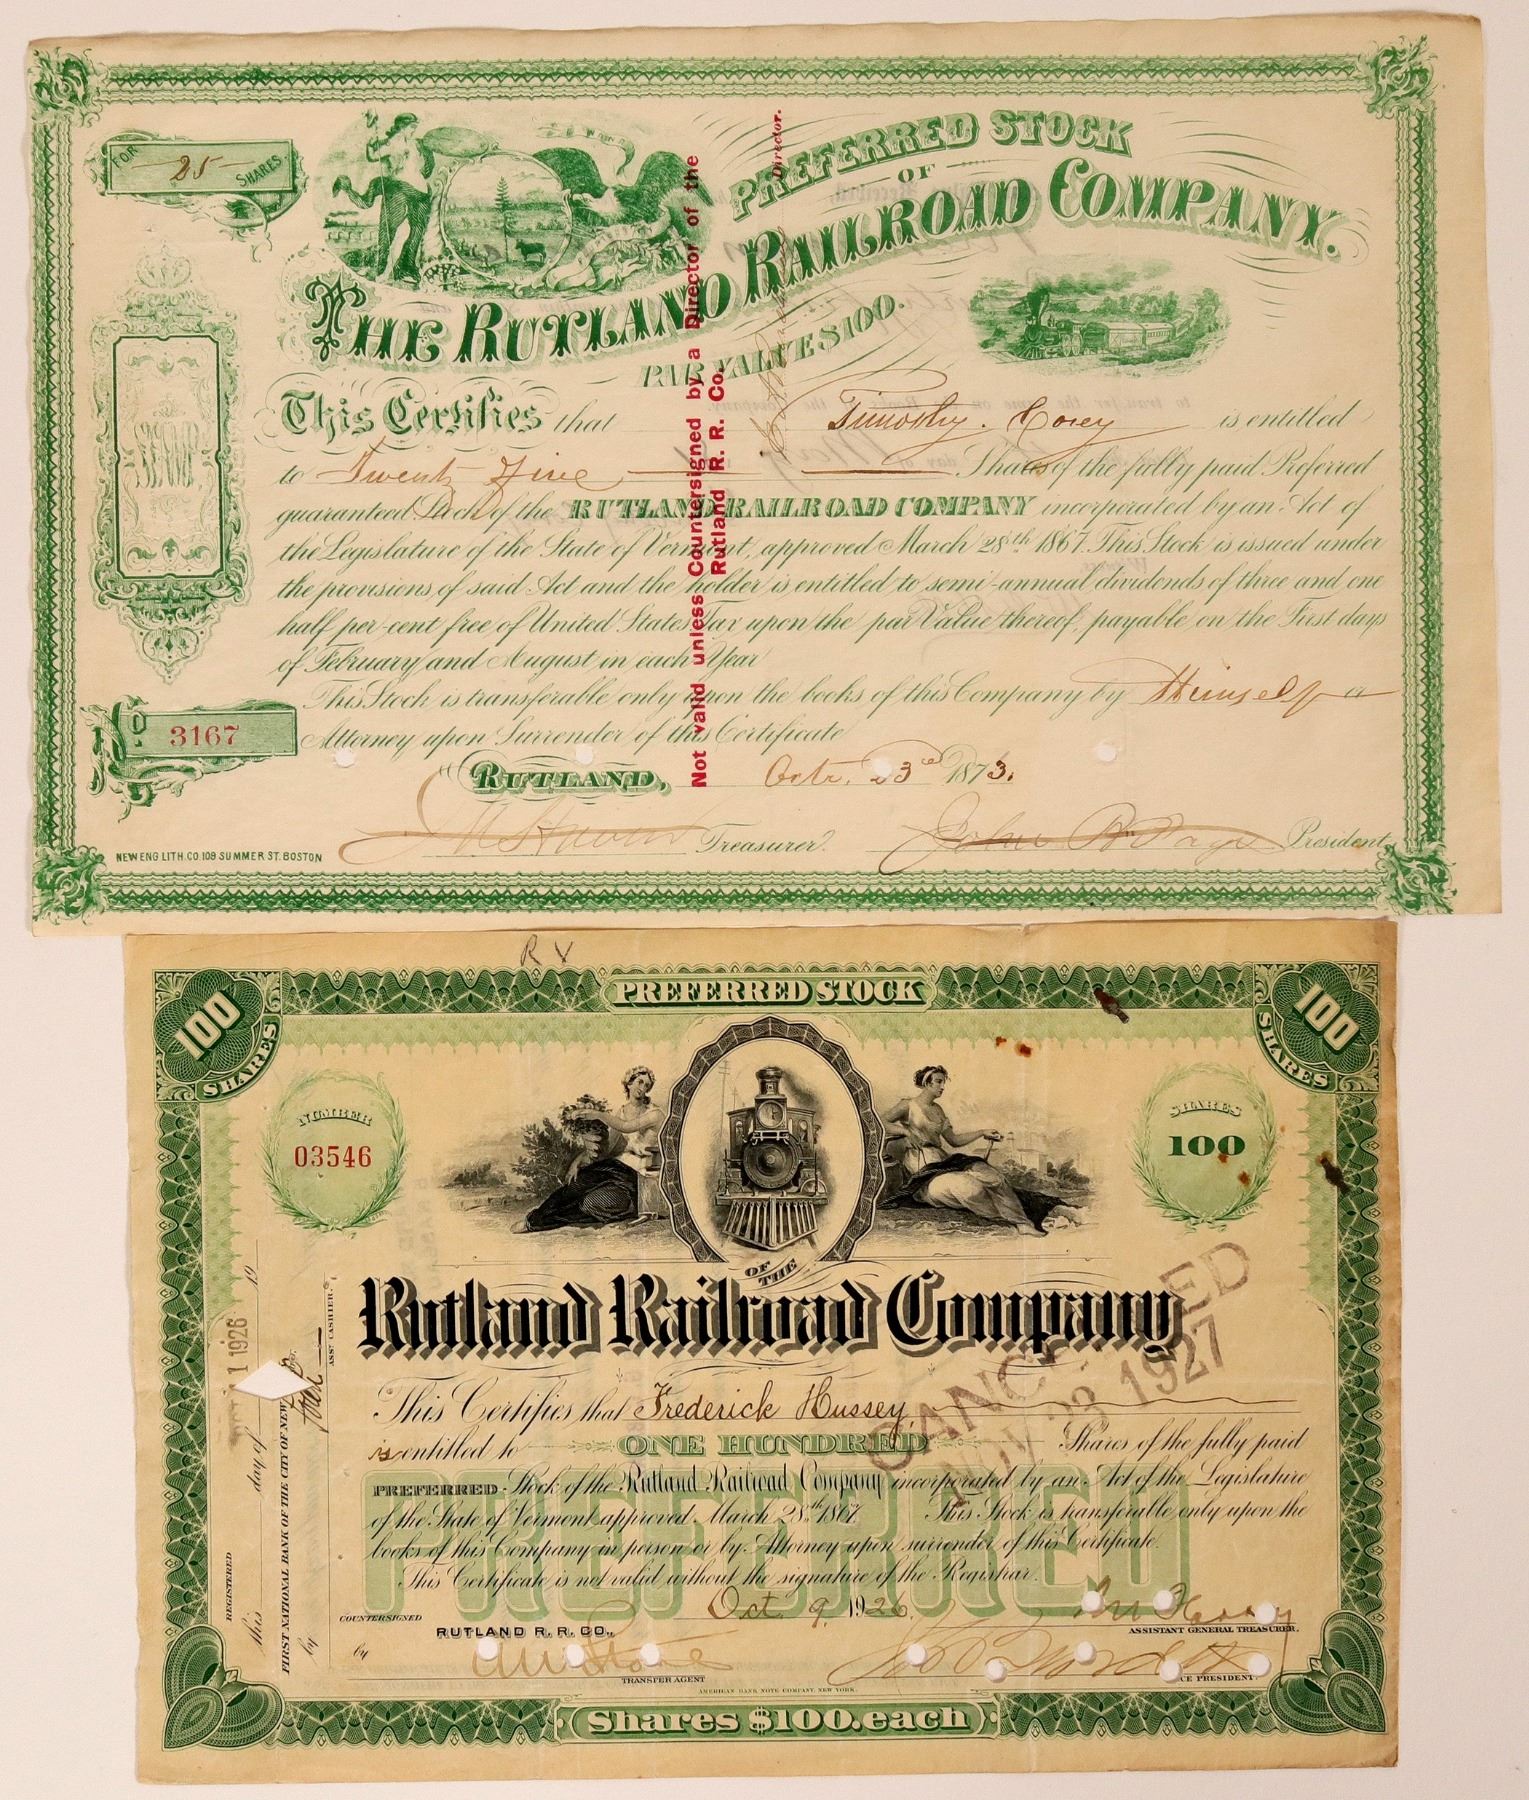 FOR 25 SHARES.
PREFERRED STOCK
OF
THE RUTLAND RAILROAD COMPANY.
PAR VALUE $100.
This Certifies that Timothy. Corey is entitled
to Twenty Five Shares of the fully paid Preferred
guaranteed Stock of the RUTLAND RAILROAD COMPANY incorporated by an Act of
the Legislature of the State of Vermont, approved March 28th 1867. This Stock is issued under
the provisions of said Act and the holder is entitled to semi-annual dividends of three and one
half per-cent free of United States Tax upon the par Value thereof, payable on the First days
of February and August in each Year
This Stock is transferable only upon the books of this Company by Himself or
Attorney upon Surrender of this Certificate
NO. 3167
RUTLAND, Octr. 23rd 1873.
Treasurer. John B. Page President.
NEW ENG LITH. CO. 109 SUMMER ST. BOSTON
Not valid unless Countersigned by a Director of the
Rutland R. R. Co.
Director.
R V
PREFERRED STOCK
100 SHARES
100 SHARES
NUMBER
03546
SHARES
100
OF THE
Rutland Railroad Company
CANCELLED
1927
This Certifies that Frederick Hussey,
is entitled to ONE HUNDRED Shares of the fully paid
PREFERRED Stock of the Rutland Railroad Company incorporated by an Act of the Legislature
of the State of Vermont approved March 28th 1867. This Stock is transferable only upon the
books of this Company in person or by Attorney upon surrender of this Certificate.
This Certificate is not valid without the signature of the Registrar.
PREFERRED
Oct. 9, 1926.
COUNTERSIGNED
RUTLAND R. R. CO.,
by
TRANSFER AGENT
ASSISTANT GENERAL TREASURER.
VICE PRESIDENT.
AMERICAN BANK NOTE COMPANY, NEW YORK.
Shares $100. each
REGISTERED
this day of 19
1 1926
FIRST NATIONAL BANK OF THE CITY OF NEW
by
ASST CASHIER